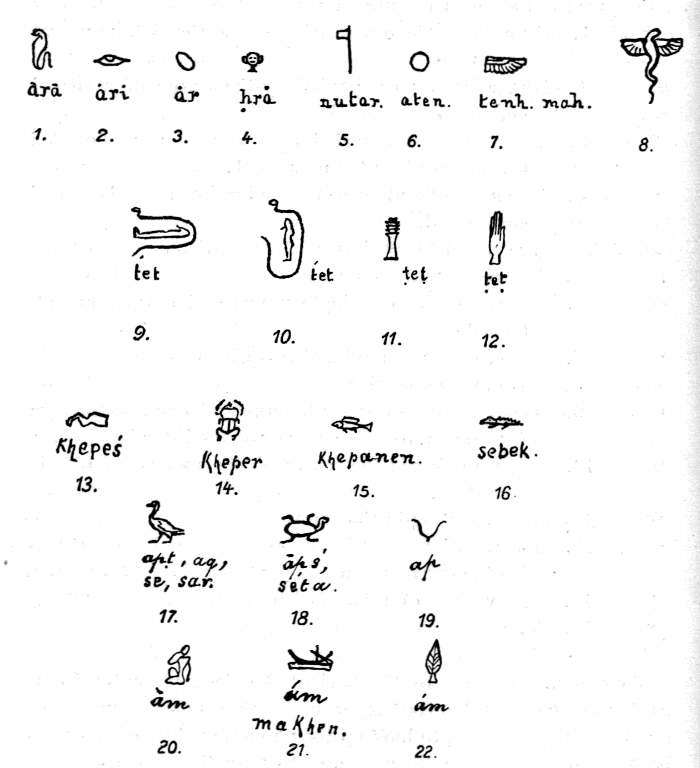 àrā ȧri ȧr ḥrȧ nutar. aten. tenh. mah.
1. 2. 3. 4. 5. 6. 7. 8.
t́et t́et ṭeṭ ṭeṭ
9. 10. 11. 12.
Khepeś Kheper Khepanen. sebek.
13. 14. 15. 16
apṭ, aq, āpś, ap
se, sar. śeta.
17. 18. 19.
àm ám ám
makhen.
20. 21. 22.